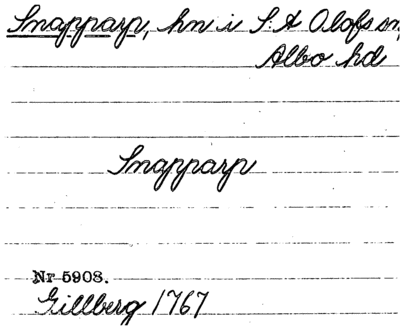 Snapparp, hn i S:t Olofs sn,
Albo hd
Snapparp
Nr 5908.
Gillberg 1767